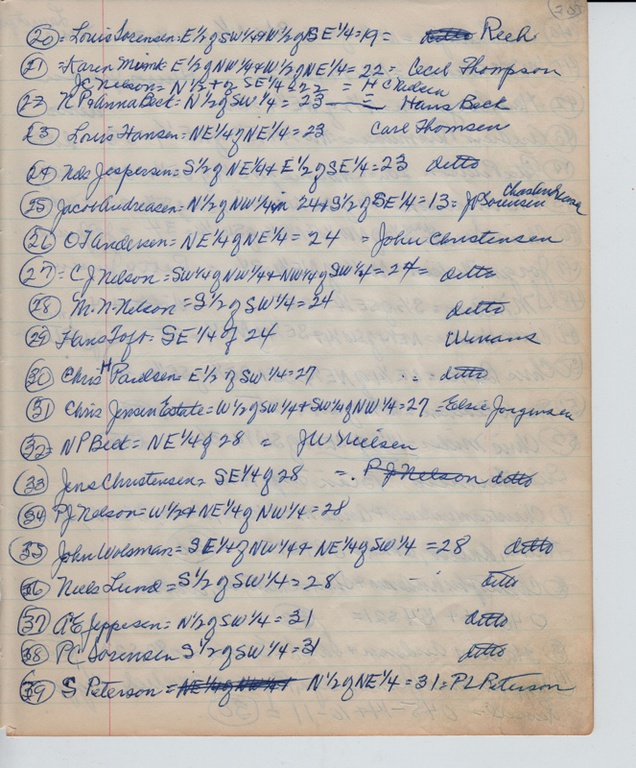 20 = Louis Sorensen = E½ of SW¼ + W½ of SE¼ = 19 = ditto Reeh
21 = Karen Munk E½ of NW¼ + W½ of NE¼ = 22 = Cecil Thompson
JC Nelson = N½ + 2 SE¼ = 22 = H C Nelsen
22 = N P + Anna Beck = N½ of SW¼ = 23 — = Hans Beck
23 Louis Hansen = NE¼ of NE¼ = 23 Carl Thomsen
24 Nels Jespersen = S½ of NE¼ + E½ of SE¼ = 23 ditto
25 Jacob Andreasen = N½ of NW¼ in 24 + S½ of SE¼ = 13 = JP Sorensen
26 O F Andersen = NE¼ of NE¼ = 24 = John Christensen
27 = C J Nelson = SW¼ of NW¼ + NW¼ of SW¼ = 24 = ditto
28 M. N. Nelson = S½ of SW¼ = 24 ditto
29 Hans Toft = SE¼ of 24 Winans
30 Chris H Paulsen = E½ of SW¼ = 27 ditto
31 Chris Jensen Estate = W½ of SW¼ + SW¼ of NW¼ = 27 = Elsie Jorgensen
32 = N P Beck = NE¼ of 28 = J W Nielsen
33 Jens Christensen = SE¼ of 28 = P J Nelson ditto
34 P J Nelson = W½ + NE¼ of NW¼ = 28
35 John Wolsman = SE¼ of NW¼ + NE¼ of SW¼ = 28 ditto
36 Niels Lund = S½ of SW¼ = 28 - ditto
37 A E Jeppesen = N½ of SW¼ = 31 ditto
38 P C Sorensen S½ of SW¼ = 31 ditto
39 S Peterson = NE¼ of NW¼ N½ of NE¼ = 31 = P L Peterson